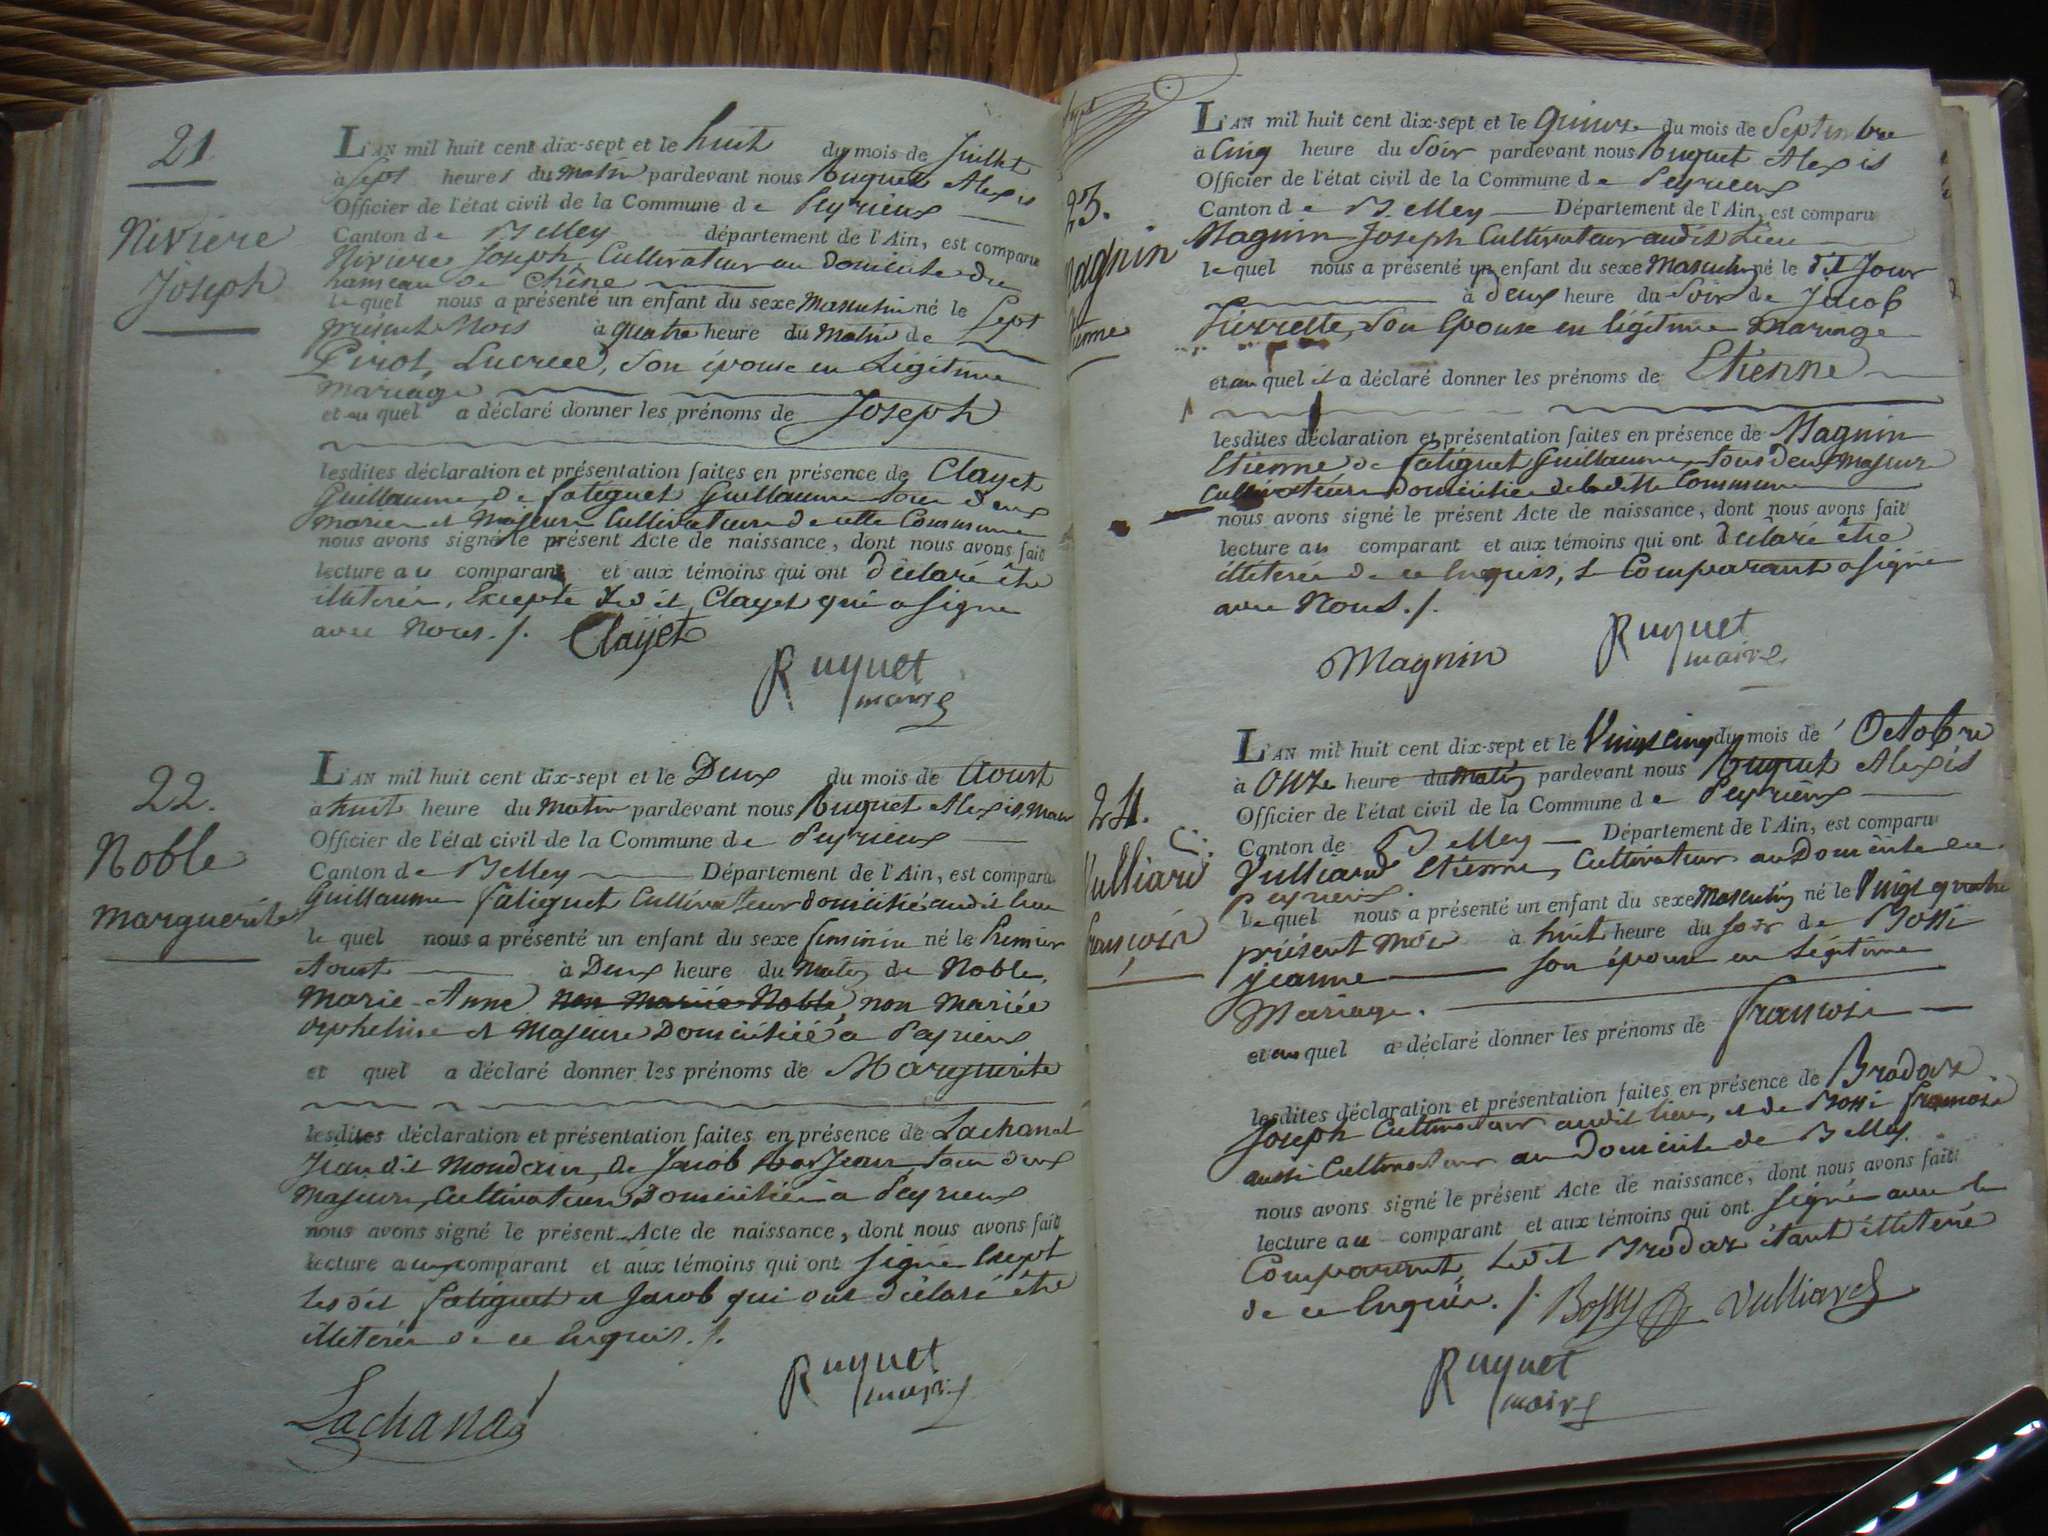 21.
Niviere
Joseph
L'AN mil huit cent dix-sept et le huit du mois de Juillet
à Sept heures du Matin pardevant nous Ruquet Alexis
Officier de l'état civil de la Commune de Peyrieux
Canton de Belley département de l'Ain, est comparu
Niviere Joseph, Cultivateur au Domicile du
hameau de Chêne
lequel nous a présenté un enfant du sexe Masculin né le Sept
présent Mois à quatre heure du Matin de
Pirot, Lucrece, Son épouse en Légitime
Mariage
et au quel a déclaré donner les prénoms de Joseph
lesdites déclaration et présentation faites en présence de Clayet
Guillaume, de faliguet Guillaume tous deux
Mariés et Majeurs Cultivateurs de cette Commune
nous avons signé le présent Acte de naissance, dont nous avons fait
lecture au comparant et aux témoins qui ont déclaré être
illiterés, Excepté Ledit Clayet qui a signé
avec Nous ./.
Clayet
Ruquet
maire
22.
Noble
Marguerite
L'AN mil huit cent dix-sept et le Deux du mois de Aoust
à huit heure du Matin pardevant nous Ruquet Alexis, Maire
Officier de l'état civil de la Commune de Peyrieux
Canton de Belley Département de l'Ain, est comparu
Guillaume faliguet Cultivateur domicilié audit lieu
lequel nous a présenté un enfant du sexe feminin né le Premier
Aoust à Deux heure du Matin de Noble
Marie-Anne non Mariée Noble, non Mariée
orpheline et Majeure Domiciliée a Peyrieux
et quel a déclaré donner les prénoms de Marguerite
lesdites déclaration et présentation faites en présence de Lachanal
Jean dit Mondain, de Jacob Jean, tous deux
Majeurs, Cultivateurs Domiciliés a Peyrieux
nous avons signé le présent Acte de naissance, dont nous avons fait
lecture aux comparant et aux témoins qui ont signé Exept
Lesdit faliguet et Jacob qui ont déclaré être
illiterés de ce Enquis ./.
Lachanal
Ruquet
maire
23.
Magnin
Etienne
L'AN mil huit cent dix-sept et le Quinze du mois de Septembre
à Cinq heure du Soir pardevant nous Ruquet Alexis
Officier de l'état civil de la Commune de Peyrieux
Canton de Belley Département de l'Ain, est comparu
Magnin Joseph Cultivateur audit Lieu
lequel nous a présenté un enfant du sexe Masculin né le dit Jour
à Deux heure du Soir de Jacob
Pierrette, Son Epouse en légitime Mariage
et au quel il a déclaré donner les prénoms de Etienne
lesdites déclaration et présentation faites en présence de Magnin
Etienne de faliguet Guillaume, tous deux Majeurs
Cultivateurs Domiciliés de ladite Commune
nous avons signé le présent Acte de naissance, dont nous avons fait
lecture au comparant et aux témoins qui ont déclaré être
illiterés de ce Enquis, Le Comparant a signé
avec Nous ./.
Magnin
Ruquet
maire
24.
Vulliard
françois
L'AN mil huit cent dix-sept et le Vingt cinq du mois de Octobre
à Onze heure du Matin pardevant nous Ruquet Alexis
Officier de l'état civil de la Commune de Peyrieux
Canton de Belley Département de l'Ain, est comparu
Vulliard Etienne, Cultivateur au Domicile de
peyrieux.
lequel nous a présenté un enfant du sexe Masculin né le Vingt quatre
présent Mois à huit heure du Soir de Bossi
jeanne son épouse en Légitime
Mariage.
et au quel a déclaré donner les prénoms de françois
lesdites déclaration et présentation faites en présence de Brodaz
Joseph Cultivateur audit lieu, et de Bossi françois
aussi Cultivateur au Domicile de Belley.
nous avons signé le présent Acte de naissance, dont nous avons fait
lecture au comparant et aux témoins qui ont signé avec le
Comparant, Ledit Brodaz étant illiteré
de ce Enquis. ./.
Bossy Vulliard
Ruquet
maire